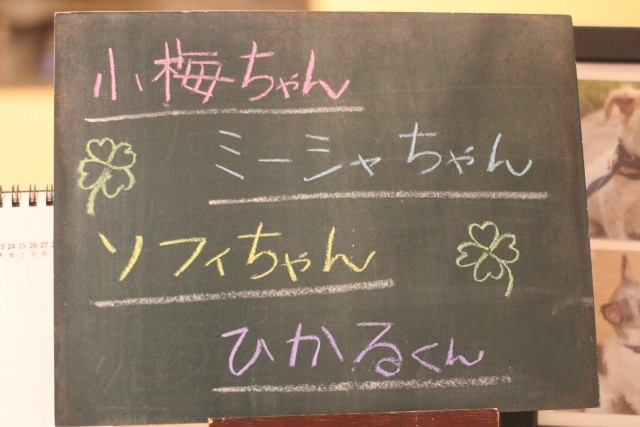 小梅ちゃん
ミーシャちゃん
ソフィちゃん
ひかるくん